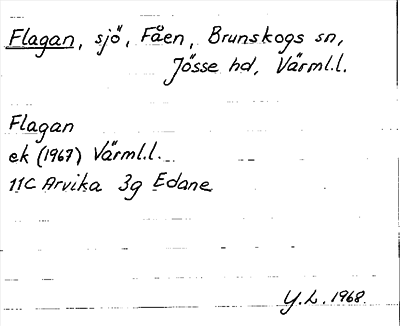 Flagan, sjö, Fåen, Brunskogs sn,
Jösse hd, Värml.l.
Flagan
ek (1967) Värml.l.
11C Arvika 3g Edane
Y.L. 1968.